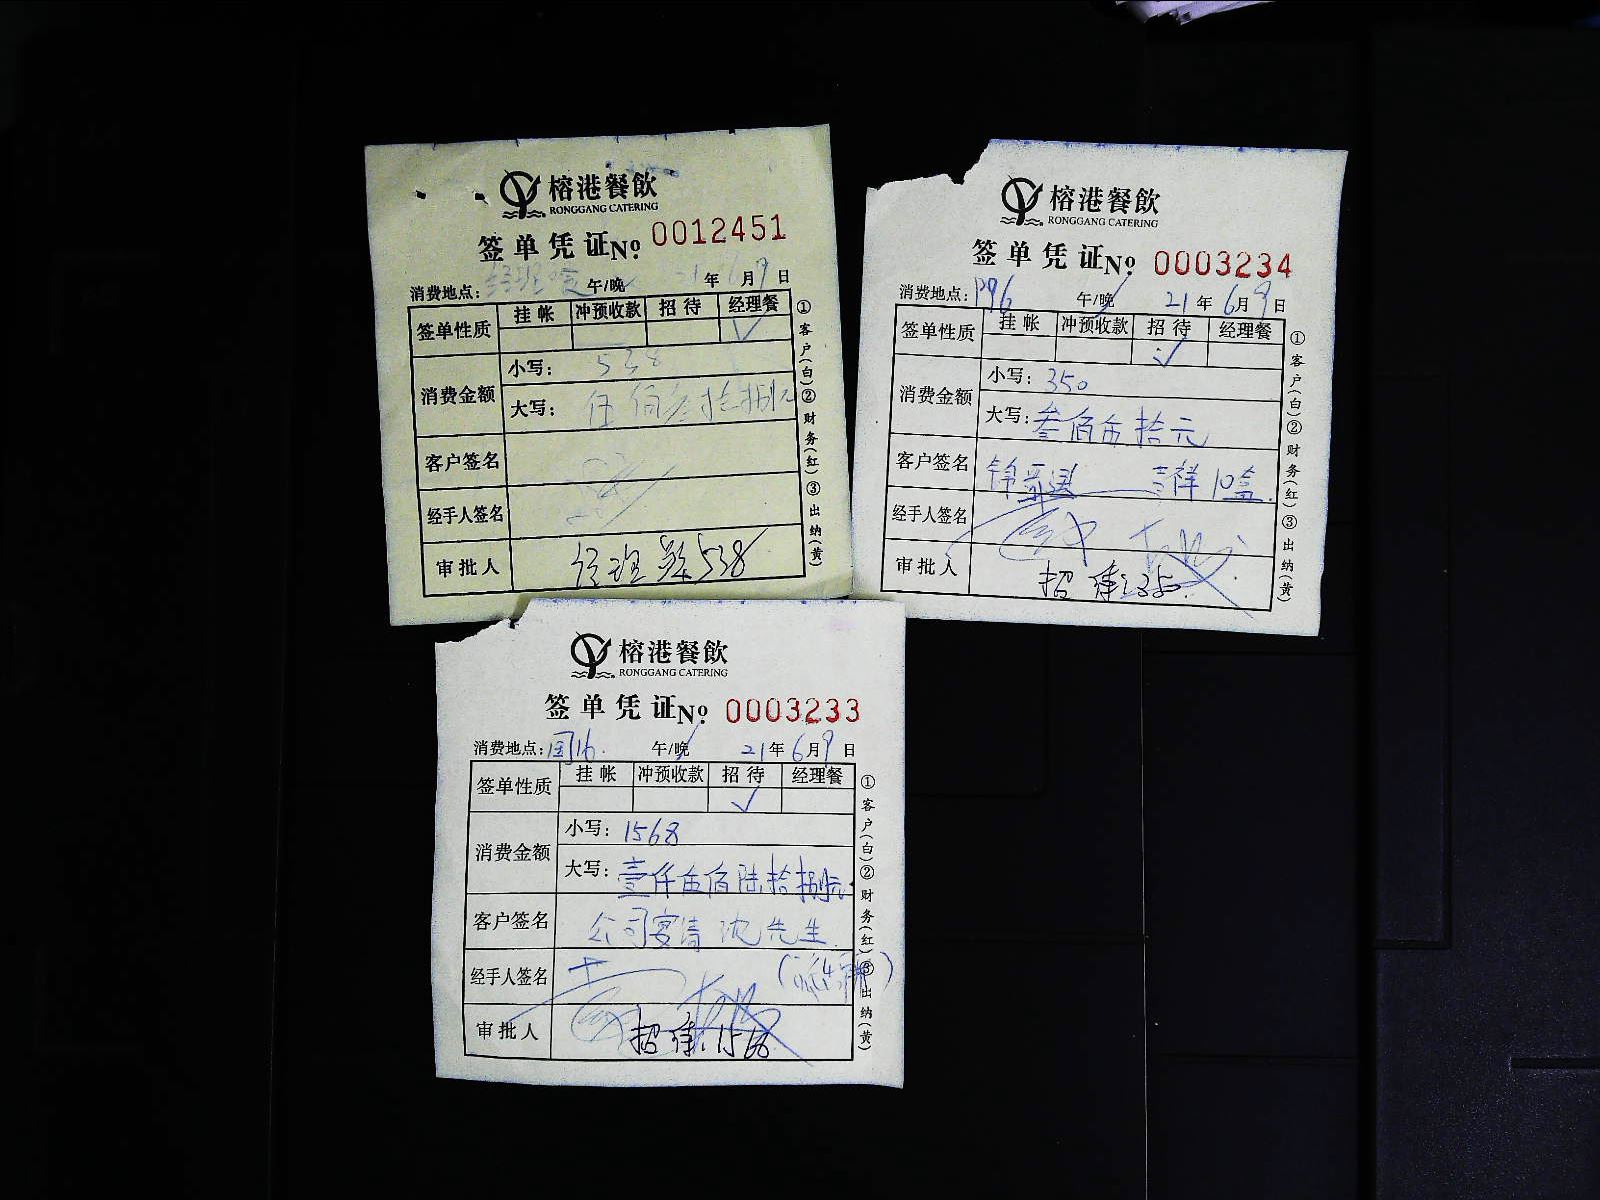 榕港餐飲
RONGGANG CATERING
签单凭证No. 0012451
消费地点: 午/晚 21年6月9日
签单性质 挂帐 冲预收款 招待 经理餐
✓
消费金额 小写: 538
大写: 伍佰叁拾捌元
客户签名
经手人签名
审批人 538
①客户(白)②财务(红)③出纳(黄)
榕港餐飲
RONGGANG CATERING
签单凭证No. 0003234
消费地点: 午/晚 21年6月9日
签单性质 挂帐 冲预收款 招待 经理餐
✓
消费金额 小写: 350
大写: 叁佰伍拾元
客户签名 吉祥10盒
经手人签名
审批人 招待:350
①客户(白)②财务(红)③出纳(黄)
榕港餐飲
RONGGANG CATERING
签单凭证No. 0003233
消费地点: 午/晚 21年6月9日
签单性质 挂帐 冲预收款 招待 经理餐
✓
消费金额 小写: 1568
大写: 壹仟伍佰陆拾捌元
客户签名 公司宴请 沈先生
经手人签名
审批人 招待:1568
①客户(白)②财务(红)③出纳(黄)